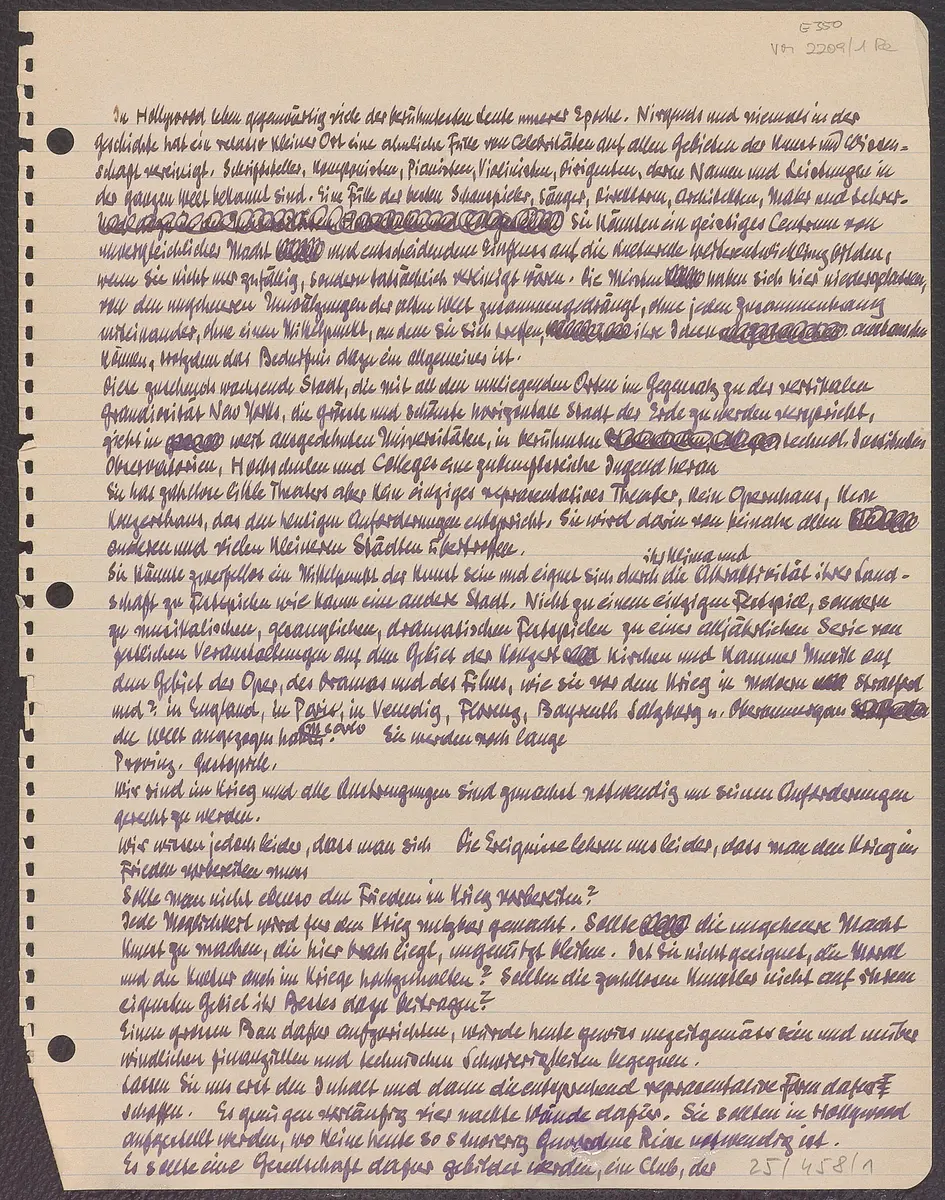 E 350
VM 2209/1 Re
In Hollywood leben gegenwärtig viele der berühmtesten Leute unserer Epoche. Nirgends und niemals in der
Geschichte hat ein relativ kleiner Ort eine ähnliche Fülle von Celebritäten auf allen Gebieten der Kunst und Wissen-
schaft vereinigt. Schriftsteller, Komponisten, Pianisten, Violinisten, Dirigenten, deren Namen und Leistungen in
der ganzen Welt bekannt sind. Eine Fülle der besten Schauspieler, Sänger, Direktoren, Architekten, Maler und Lehrer.
Sie könnten ein geistiges Centrum von
unvergleichlicher Macht und entscheidendem Einfluss auf die kulturelle Weiterentwicklung bilden,
wenn Sie nicht nur zufällig, sondern tatsächlich vereinigt wären. Die Meisten haben sich hier niedergelassen,
von den ungeheuren Umwälzungen der alten Welt zusammengedrängt, ohne jeden Zusammenhang
miteinander, ohne einen Mittelpunkt, an dem Sie sich treffen, ihre Ideen austauschen
können, trotzdem das Bedürfnis dazu ein allgemeines ist.
Diese zusehends wachsende Stadt, die mit all den umliegenden Orten im Gegensatz zu der vertikalen
Grandiosität New Yorks, die grösste und schönste horizontale Stadt der Erde zu werden verspricht,
zieht in weit ausgedehnten Universitäten, in berühmten technol. Instituten
Observatorien, Hochschulen und Colleges eine zukunftsreiche Jugend heran
Sie hat zahllose little Theaters aber kein einziges repräsentatives Theater, kein Opernhaus, kein
Konzerthaus, das den heutigen Anforderungen entspricht. Sie wird darin von beinahe allen
anderen und vielen kleineren Städten übertroffen.
ihr Klima und
Sie könnte zweifellos ein Mittelpunkt der Kunst sein und eignet sich durch die Attraktivität ihrer Land-
schaft zu Festspielen wie kaum eine andere Stadt. Nicht zu einem einzigen Festspiel, sondern
zu musikalischen, gesanglichen, dramatischen Festspielen zu einer alljährlichen Serie von
festlichen Veranstaltungen auf dem Gebiet der Konzert Kirchen und Kammer Musik auf
dem Gebiet der Oper, des Dramas und des Films, wie sie vor dem Krieg in Malvern Stratford
und? in England, in Paris, in Venedig, Florenz, Bayreuth Salzburg u. Oberammergau
die Welt angezogen haben. Sie werden noch lange
Provinz. Gastspiele.
Wir sind im Krieg und alle Anstrengungen sind zunächst notwendig um seinen Anforderungen
gerecht zu werden.
Wir wissen jedoch leider, dass man sich Die Ereignisse lehren uns leider, dass man den Krieg im
Frieden vorbereiten muss
Sollte man nicht ebenso den Frieden im Krieg vorbereiten?
Jede Möglichkeit wird für den Krieg nutzbar gemacht. Sollte die ungeheure Macht
Kunst zu machen, die hier brach liegt, ungenützt bleiben. Ist Sie nicht geeignet, die Moral
und die Kultur auch im Kriege hochzuhalten? Sollten die zahllosen Künstler nicht auf ihrem
eigensten Gebiet ihr Bestes dazu beitragen?
Einen grossen Bau dafür aufzurichten, würde heute gewiss unzeitgemäss sein und unüber
windlichen finanziellen und technischen Schwierigkeiten begegnen.
Lassen Sie uns erst den Inhalt und dann die entsprechend repräsentative Form dafür
schaffen. Es genügen vorläufig vier nackte Wände dafür. Sie sollten in Hollywood
aufgestellt werden, wo keine heute so schwierig gewordene Reise notwendig ist.
Es sollte eine Gesellschaft dafür gebildet werden, ein Club, der
25/458/1